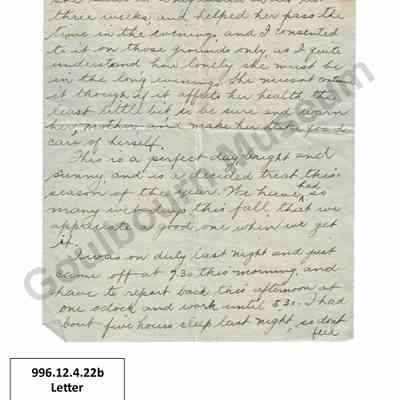 three weeks, and helped her pass the
time in the evenings, and I consented
to it on those grounds only, as I quite
understand how lonely she must be
in the long evenings. She must
it though, if it affects her health the
least little bit, so be sure and warn
her, mother, and make her take good
care of herself.
This is a perfect day, bright and
sunny, and is a decided treat this
season of the year. We have had so
many wet days this fall, that we
appreciate a good one when we get
it.
I was on duty last night and just
came off at 7.30 this morning, and
have to report back this afternoon at
one o'clock and work until 5.30. I had
about five hours sleep last night, so dont
feel
Goulbourn Museum
996.12.4.22b
Letter